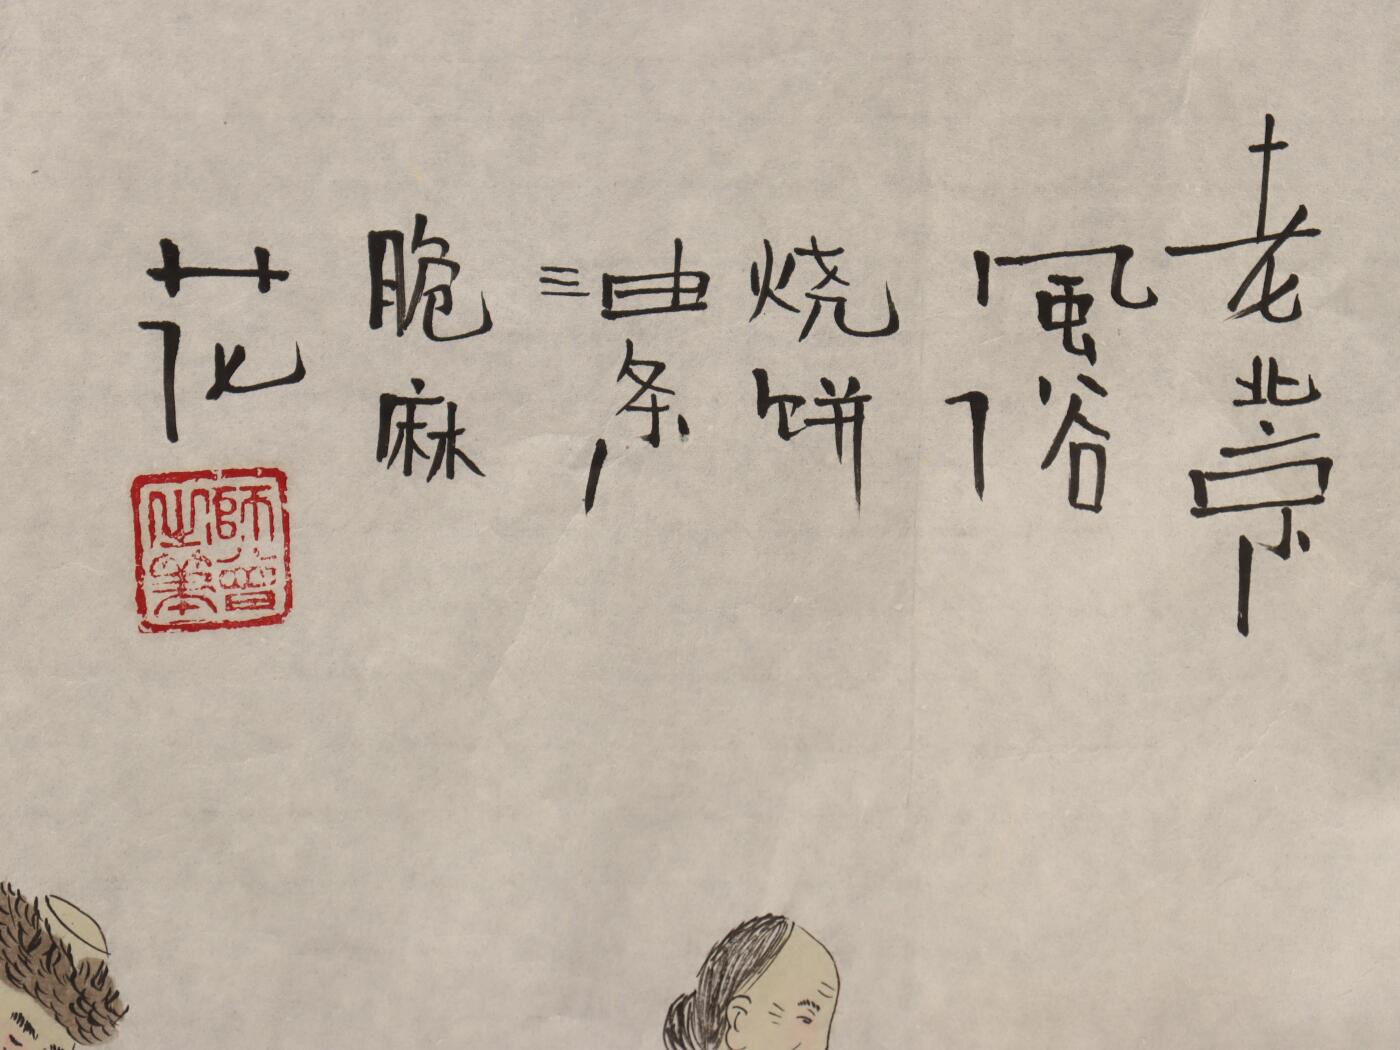 老北京
風俗
烧饼
油条
脆麻
花
師曾之筆